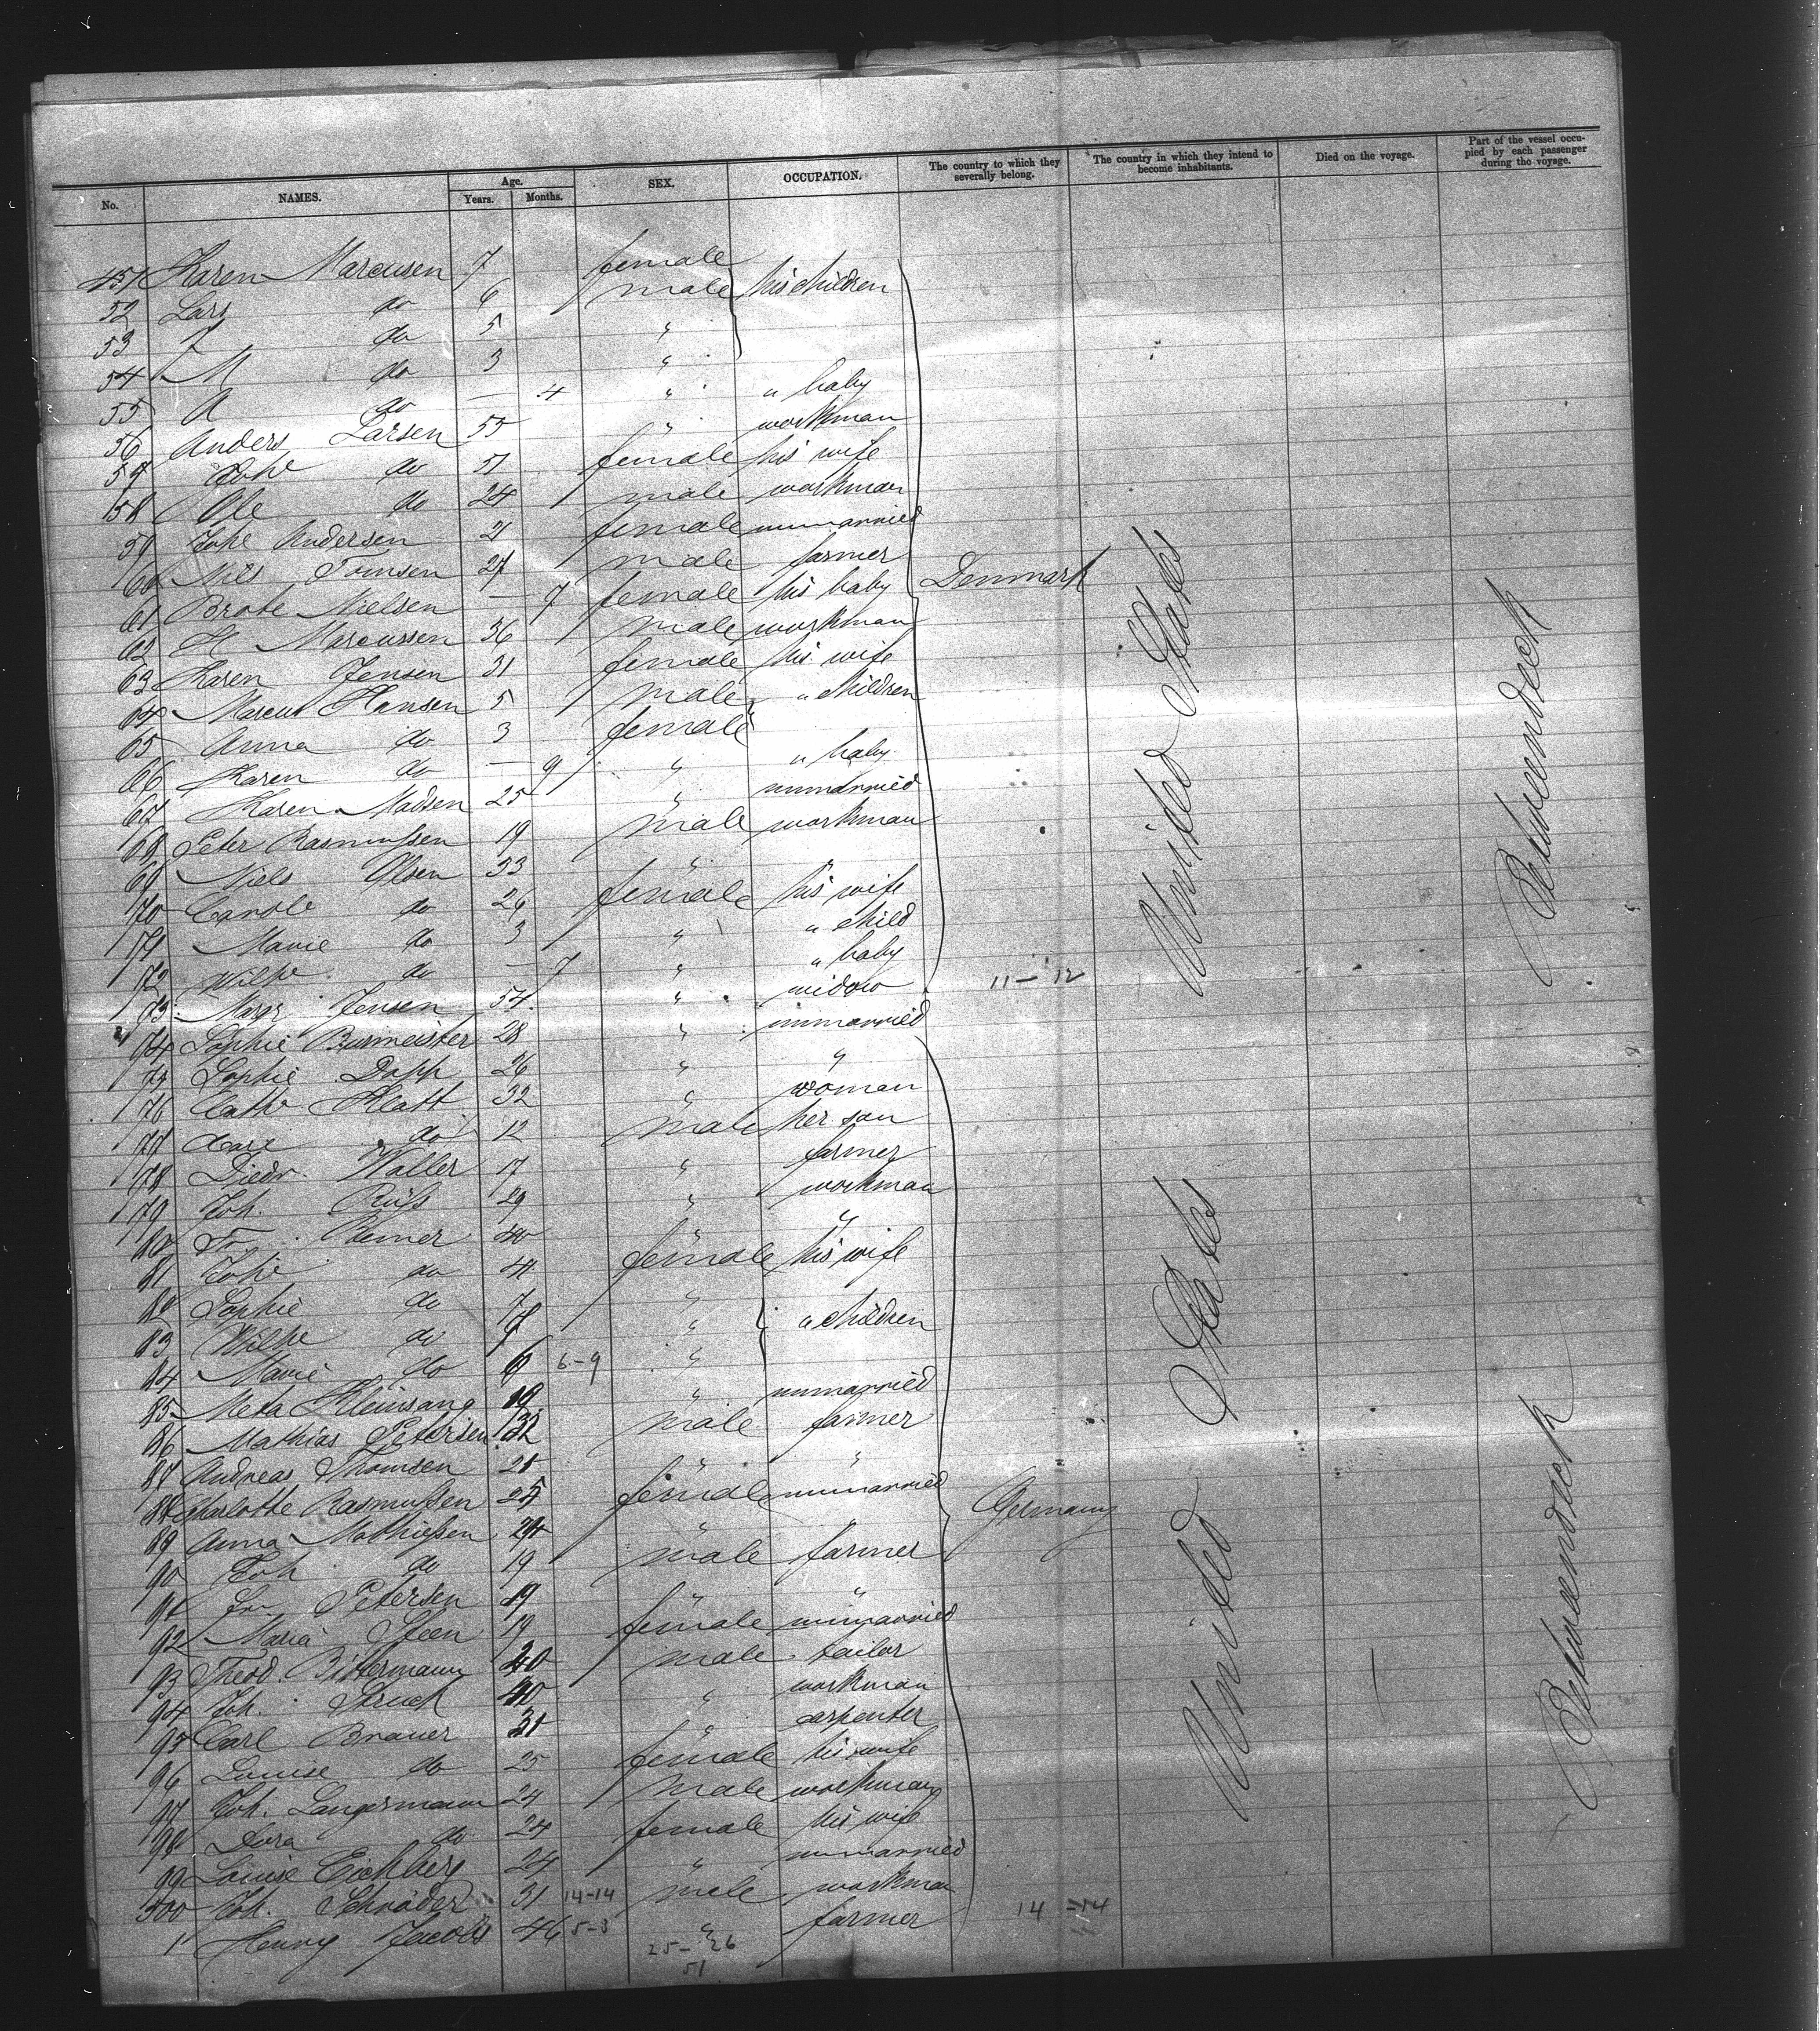 No. NAMES. Age. Years. Months. SEX. OCCUPATION. The country to which they severally belong. The country in which they intend to become inhabitants. Died on the voyage. Part of the vessel occupied by each passenger during the voyage.
451 Karen Marcusen 7 female his children
52 Lars do 6 male
53 J do 5 "
54 M do 3 "
55 A do — 4 " " baby
56 Anders Larsen 55 " workman
57 do 51 female his wife
58 Ole do 24 male workman
59 Andersen 21 female unmarried
60 Nils Tomsen 27 male farmer Denmark
61 Nielsen — 7 female his baby
62 H Marcussen 36 male workman United States
63 Karen Jensen 31 female his wife
64 Marcus Hansen 5 male " children
65 Anna do 3 female Betweendeck
66 Karen do — 9 " " baby
67 Karen Madsen 25 " unmarried
68 Peter Rasmussen 19 male workman
69 Niels Olsen 33 " "
70 Carole do 26 female his wife
71 Marie do 3 " " child
72 Wilhe do — 7 " " baby
73 Margr Jensen 54 " widow 11 - 12
74 Sophie Burmeister 28 " unmarried
75 Sophie Dapp 26 " "
76 Cathr Klatt 32 " woman
77 Carl do 12 male her son
78 Diedr. Waller 17 " farmer
79 Joh. 29 " workman
80 Fr. Riemer 40 " "
81 do 41 female his wife
82 Sophie do " " children
83 Wilhe do "
84 Marie do 6-9 "
85 Meta Kleinsang 19 " unmarried
86 Mathias Petersen 32 male farmer
87 Andreas Thomsen " "
88 Charlotte Rasmussen female unmarried Germany
89 Anna Mathiessen 24 " "
90 Joh do 19 male farmer
91 Petersen 19 " "
92 Maria Steen 19 female unmarried United States
93 Theod. Bittermann 40 male tailor
94 Joh. Struck " workman Betweendeck
95 Carl Brauer 31 " carpenter
96 Louise do 25 female his wife
97 Joh. Langermann 24 male workman
98 Dora do 24 female his wife
99 Louise Eichberg 24 " unmarried
500 Joh. Schröder 31 14-14 male workman
1 Henry Jacobs 46 5-3 " farmer 14 - 14
25 - 26
51